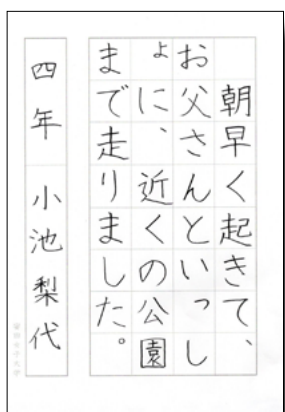 朝早く起きて、
お父さんといっし
ょに、近くの公園
まで走りました。
四年 小池梨代